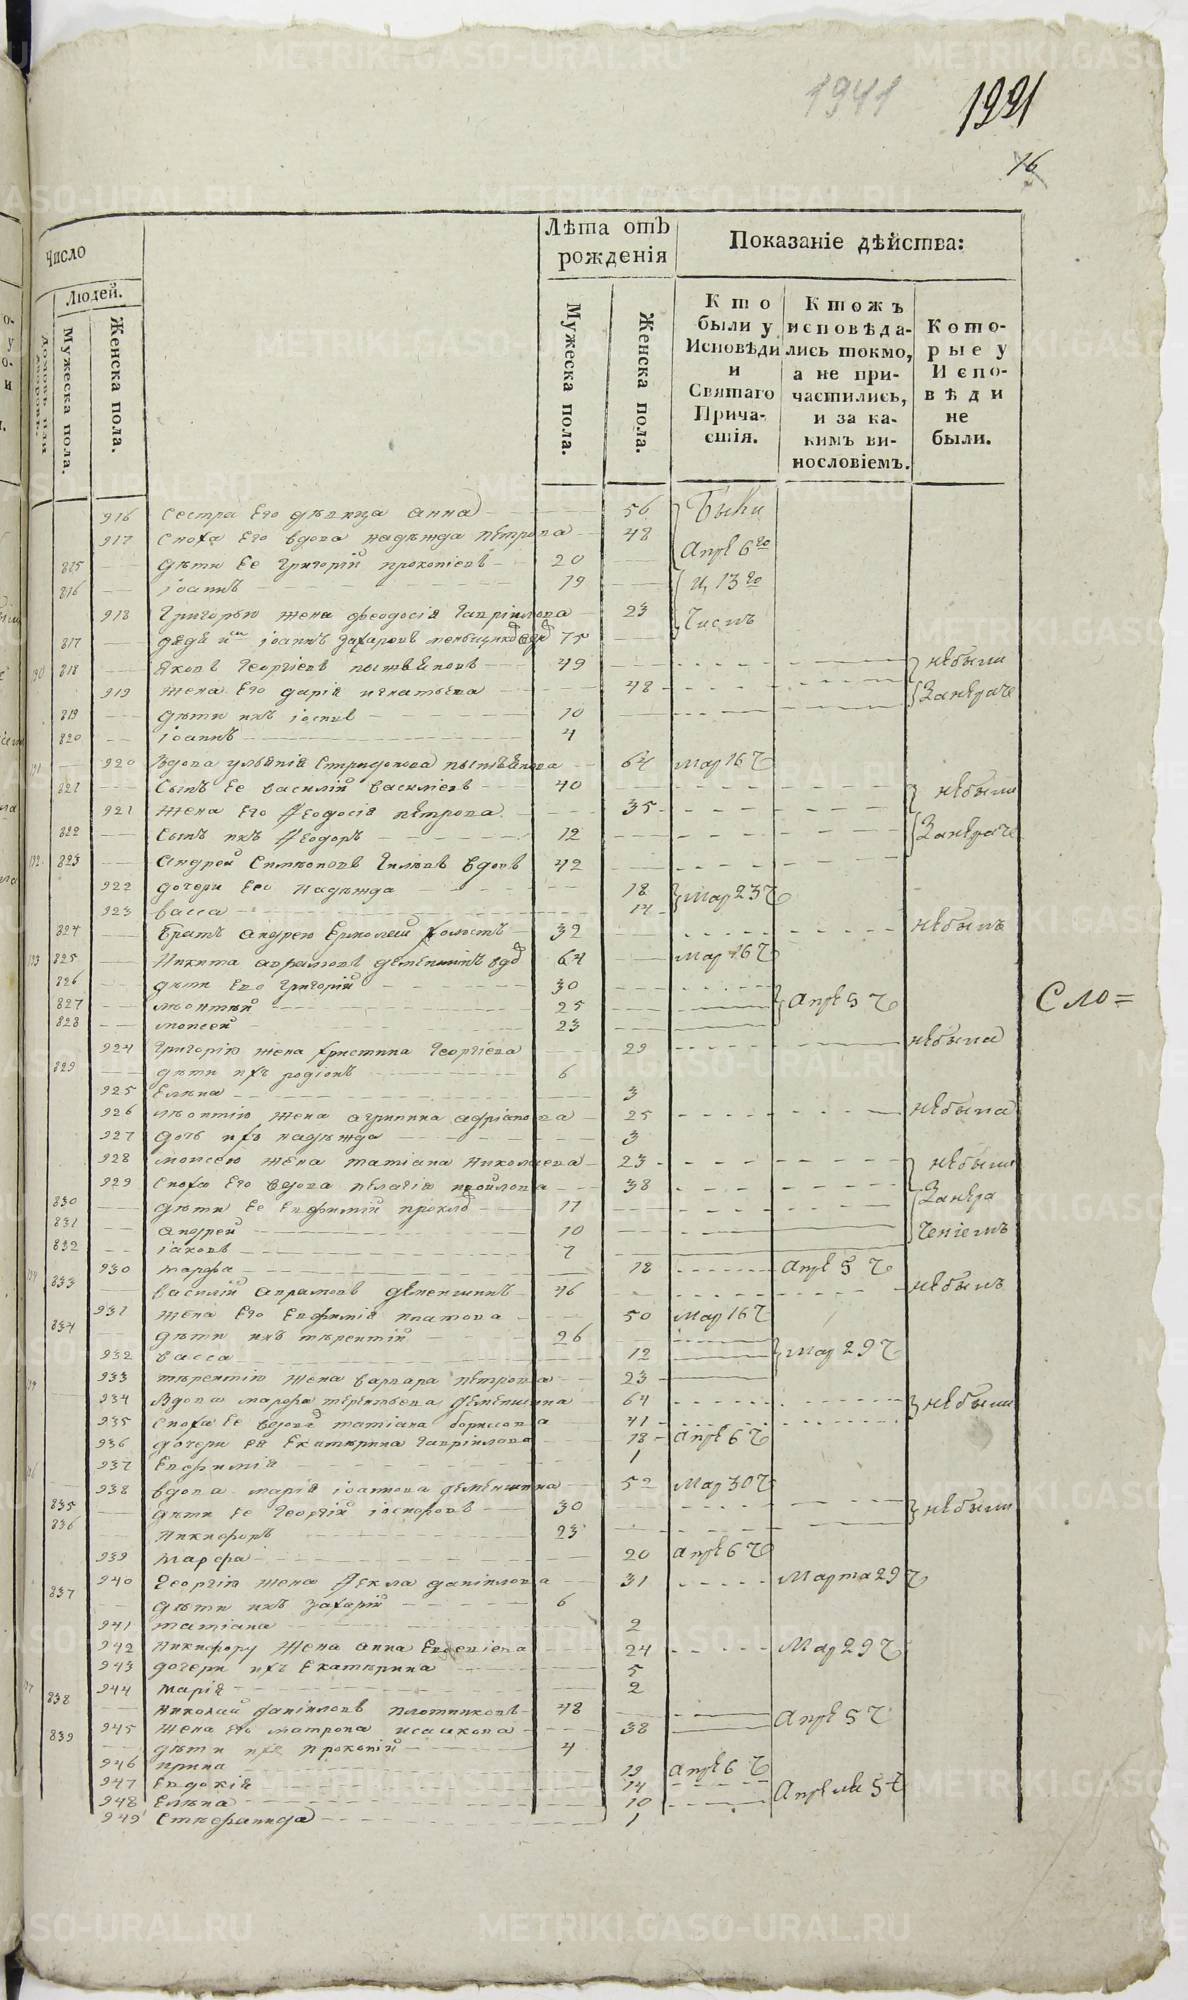 1941 1991
16
Число
Людей.
Лѣта отъ рожденія
Показаніе дѣйства:
Мужеска пола.
Женска пола.
Мужеска пола.
Женска пола.
Кто были у Исповѣди и Святаго Прича-стія.
Ктожъ исповѣда-лись токмо, а не при-частились, и за ка-кимъ ви-нословіемъ.
Кото-рые у Испо-вѣди не были.
916 Сестра Его дѣвица Анна 56 Были
917 Сноха Его вдова Надѣжда Петрова 48
815 дѣти Ее Григорій Прокопіевъ 20 Апрѣ 6го
816 Іоаннъ 19 и 13го
918 Григорью жена Феодосія Гавріилова 23 Чиселъ
817 Іоаннъ Захаровъ 75
818 Яковъ Георгіевъ 49 небыли
919 Жена Его Дарія Игнатьева 48
819 дѣти ихъ Іосифъ 10
820 Іоаннъ 4
920 Вдова Ульянія Спиридонова 64 Мар 16 Ч
821 Сынъ Ее Василій Василіевъ 40 небыли
921 Жена Его Феодосія Петрова 35
822 Сынъ ихъ Феодоръ 12
823 Андрей Симеоновъ вдовъ 42
922 дочери Его Надѣжда 18 Мар 23 Ч
923 Васса 14
824 Братъ Андрею Ермолай холостъ 32 небылъ
825 Никита Аврамовъ Деменшинъ вдо 64 Мар 16 Ч
826 дѣти Его Григорій 30
827 Леонтій 25 Апрѣ 5 Ч
828 Моисей 23
Сло=
924 Григорію жена Христина Георгіева 29 небыла
829 дѣти ихъ Родіонъ 6
925 Елена 3
926 Леонтію жена Агрипина Адріанова 25 небыла
927 дочь ихъ Надѣжда 3
928 Моисею жена Татіана Николаева 23 небыли
929 Сноха Его вдова Пелагія 38
830 дѣти Ее Евфимій 17
831 Андрей 10
832 Іаковъ 7
930 Марфа 18 Апрѣ 5 Ч
833 Василій Аврамовъ Деменшинъ 46 небылъ
931 Жена Его Евфимія Платова 50 Мар 16 Ч
834 дѣти ихъ Терентій 26
932 Васса 12 Мар 29 Ч
933 Терентію жена Варвара Петрова 23
934 Вдова Марфа Терентьева Деменшина 64 небыли
935 Сноха Ее вдова Татіана Борисова 41
936 дочери Ея Екатерина Гавріилова 18 Апрѣ 6 Ч
937 Евфимія 1
938 вдова Марія Іоаннова Деменшина 52 Мар 30 Ч
835 дѣти Ее Георгій 30 небыли
836 Никифоръ 23
939 Марфа 20 Апрѣ 6 Ч
940 Георгію жена Фекла Даніилова 31 Марта 29 Ч
837 дѣти ихъ Захарій 6
941 Татіана 2
942 Никифору жена Анна Евгеніева 24 Мар 29 Ч
943 дочери ихъ Екатерина 5
944 Марія 2
838 Николай Даніиловъ Плотниковъ 48
945 Жена Его Матрона Исаакова 38 Апрѣ 5 Ч
839 дѣти ихъ Прокопій 4
946 Ирина 19 Апрѣ 6 Ч
947 Евдокія 14
948 Елена 10 Апреля 5 Ч
949 Стефанида 1